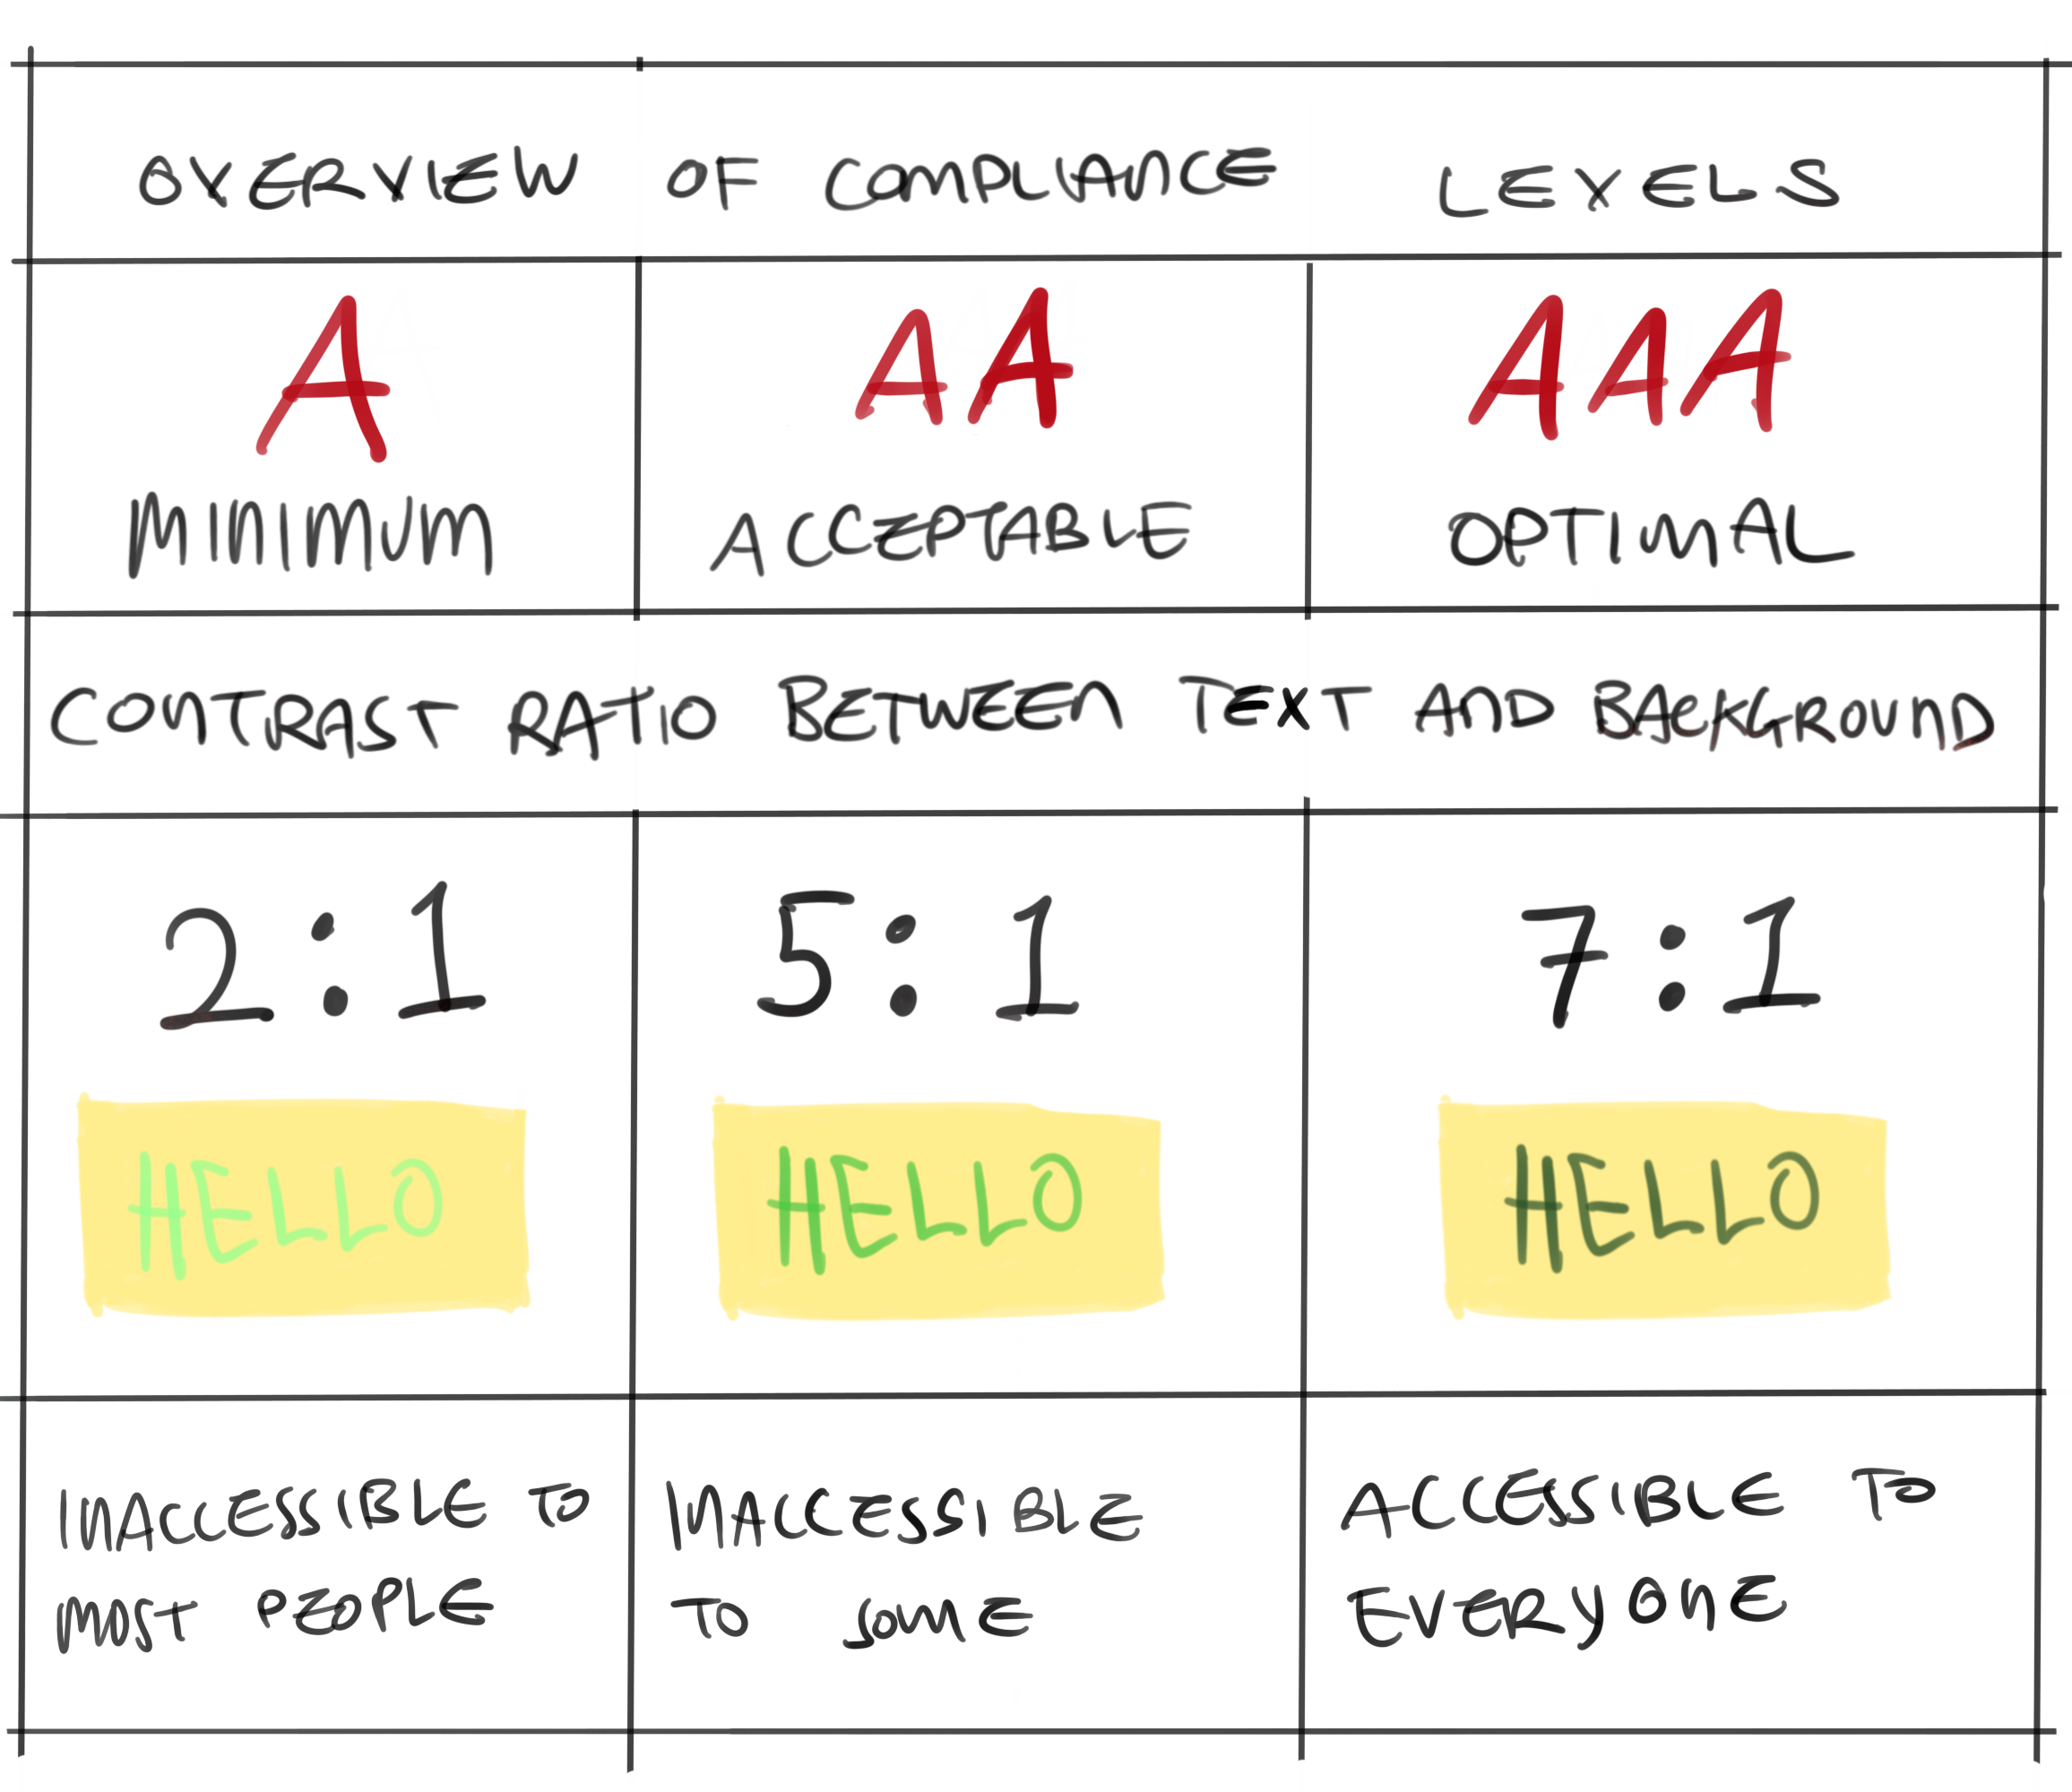 OVERVIEW OF COMPLIANCE LEVELS
A AA AAA
MINIMUM ACCEPTABLE OPTIMAL
CONTRAST RATIO BETWEEN TEXT AND BACKGROUND
2:1 5:1 7:1
HELLO HELLO HELLO
INACCESSIBLE TO MOST PEOPLE
INACCESSIBLE TO SOME
ACCESSIBLE TO EVERYONE